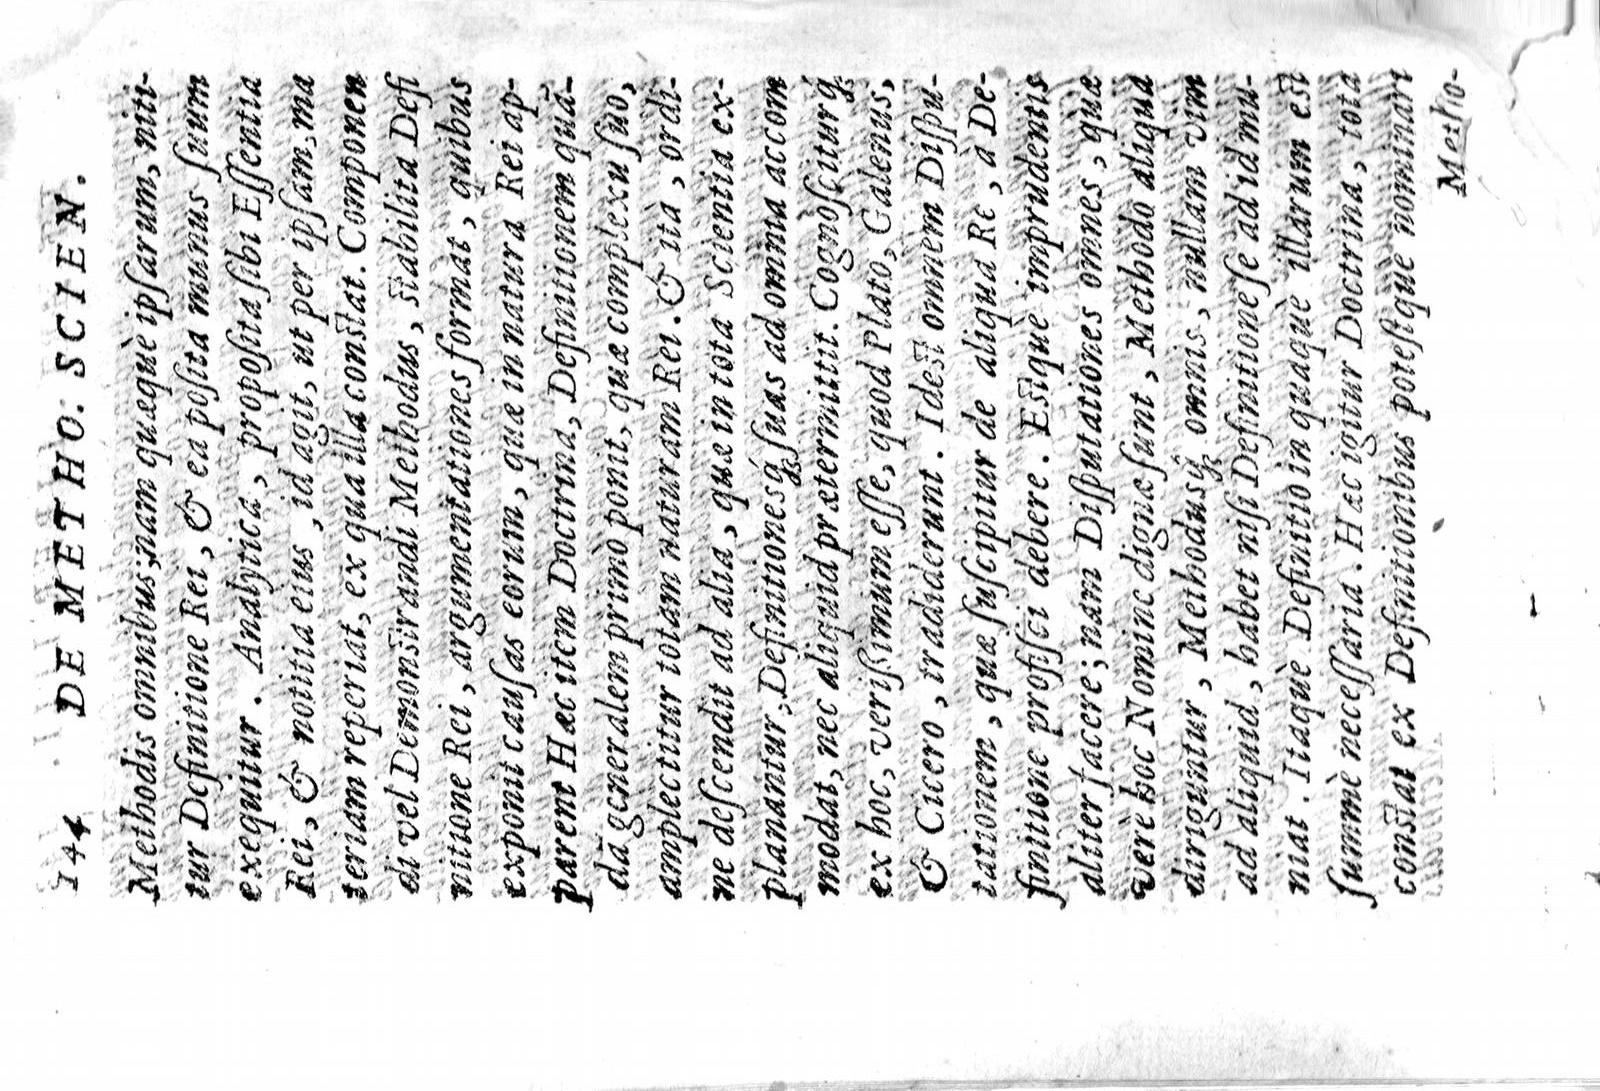 144 DE METHO. SCIEN.
Methodis omnibus; nam quæquè ipſarum, niti-
tur Definitione Rei, & ea poſita munus ſuum
exequitur. Analytica, propoſita ſibi Eſſentia
Rei, & notitia eius, id agit, ut per ipſam, ma
teriam reperiat, ex qua illa conſtat. Componen
di vel Demonſtrandi Methodus, ſtabilita Defi
nitione Rei, argumentationes format, quibus
exponit cauſas eorum, quæ in natura Rei ap-
parent Hæc item Doctrina, Definitionem quā-
dā generalem primò ponit, quæ complexu ſuo,
amplectitur totam naturam Rei. & ità, ordi-
ne deſcendit ad alia, quæ in tota Scientia ex-
planantur, Definitionesq́; ſuas ad omnia accom
modat, nec aliquid prætermittit. Cognoſciturq́;
ex hoc, veriſsimum eſſe, quod Plato, Galenus,
& Cicero, tradiderunt. Ideſt omnem Diſpu-
tationem, quæ ſuſcipitur de aliqua Re, à De-
finitione profiſci debere. Eſtquè imprudentis
aliter facere; nam Diſputationes omnes, quæ
verè hoc Nomine dignæ ſunt, Methodo aliqua
diriguntur, Methodusq́; omnis, nullam vim
ad aliquid, habet niſi Definitione ſe ad id mu-
niat. Itaquè Definitio in quaquè illarum eſt
ſummè neceſſaria. Hæc igitur Doctrina, tota
conſtat ex Definitionibus poteſtque nominari
Metho-